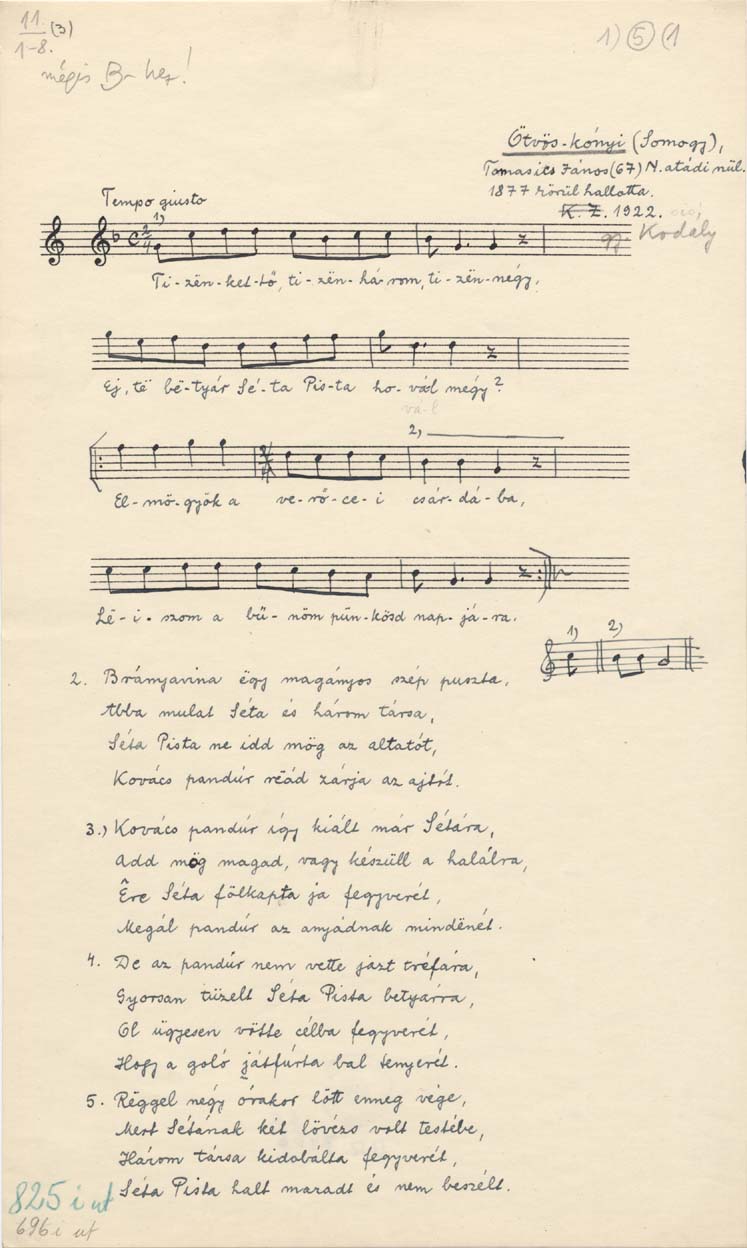 11 (3)
1-8.
mégis B-hez!
1) 5 (1
Ötvös-kónyi (Somogy),
Tomasics János (67) N.atádi nül.
1877 körül hallotta.
K. Z. 1922.
gy. Kodály
Tempo giusto
1)
2/4
Ti-zën-ket-tő, ti-zën-há-rom, ti-zën-négy,
Ej, të bë-tyár Sé-ta Pis-ta ho-vál mégy?
va-l
2)
El-mö-gyök a ve-rő-ce-i csár-dá-ba,
Lë-i-szom a bű-nöm pün-kösd nap-já-ra.
1) 2)
2. Brámjavina ëgy magányos szép puszta,
Abba mulat Séta és három társa,
Séta Pista ne idd mög az altatót,
Kovács pandúr rëád zárja az ajtót.
3.) Kovács pandúr így kiált már Sétára,
Add mög magad, vagy készüll a halálra,
Êre Séta fölkapta ja fegyverét,
Megál pandúr az anyádnak mindënét.
4. De az pandúr nem vette jazt tréfára,
Gyorsan tüzelt Séta Pista betyárra,
Ol ügyesen vötte célba fegyverét,
Hogy a goló játfúrta bal tenyerét.
5. Rëggel négy órakor lött enneg vége,
Mert Sétának két lövézs volt testébe,
Három társa kidobálta fegyverét,
Séta Pista halt maradt és nem beszélt.
825 i ut
696 i ut